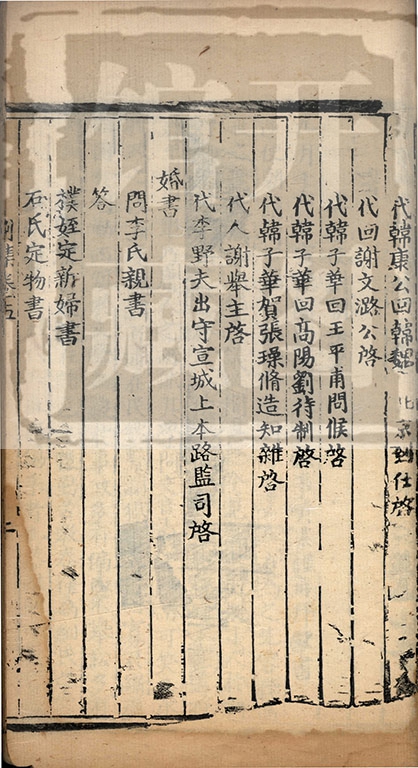 代韓康公回韓魏 北京到仕啓
代回謝文潞公啓
代韓子華回王平甫問候啓
代韓子華回高陽劉待制啓
代韓子華賀張璪脩造知雜啓
代人謝舉主啓
代李野夫出守宣城上本路監司啓
婚書
問李氏親書
答
撲姪定新婦書
石氏定物書